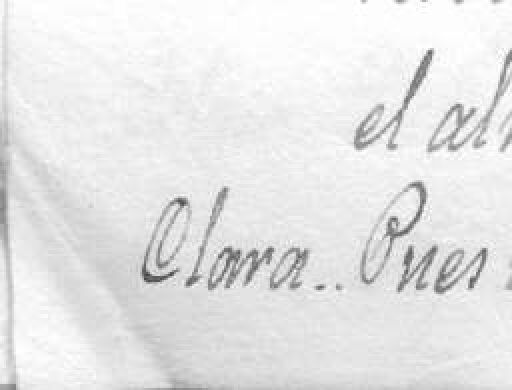 el al
Clara.. Pues